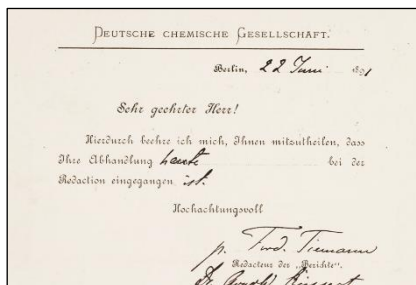 DEUTSCHE CHEMISCHE GESELLSCHAFT.
Berlin, 22 Juni 1891
Sehr geehrter Herr!
Hierdurch beehre ich mich, Ihnen mitzutheilen, dass
Ihre Abhandlung heute bei der
Redaction eingegangen ist.
Hochachtungsvoll
p. Ferd. Tiemann
Redacteur der „Berichte“.
Dr. Arnold Reissert